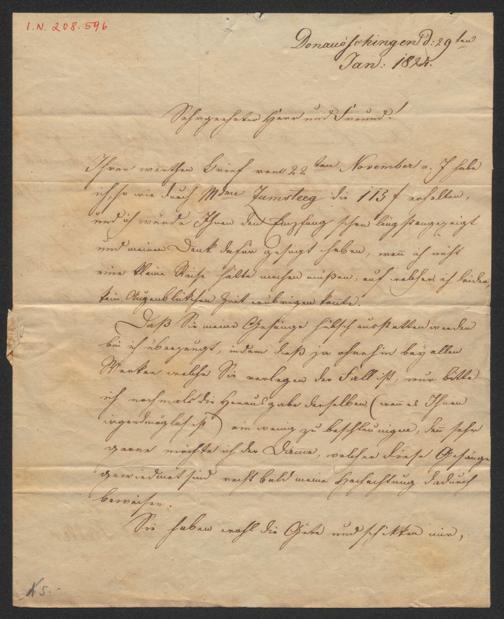 I.N. 208.596
Donauöschingen d: 29ten
Jan: 1824.
Sehrgeehrter Herr und Freund!
Ihren werthen Brief vom 22ten November v. J habe
ich, so wie durch Mdme Zumsteeg die 113 f erhalten,
und ich würde Ihnen den Empfang schon längst angezeigt
und meinen Dank dafür gesagt haben, wenn ich nicht
eine kleine Reise hätte machen müßen, auf welcher ich leider
kein Augenblickchen Zeit erübrigen konte.
Daß Sie meine Gesänge hübsch ausstatten werden
bin ich überzeugt, indem daß ja ohnehin bey allen
Werken welche Sie verlegen der Fall ist, nur bitte
ich nochmals die Herausgabe derselben (wenn es Ihnen
irgend möglich ist) ein wenig zu beschleunigen, denn sehr
gerne möchte ich der Dame, welcher diese Gesänge
gewiedmet sind recht bald meine Hochachtung dadurch
beweisen.
Sie haben wohl die Güte und schikken mir,